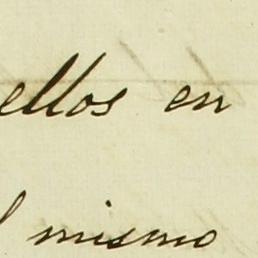 ellos en
mismo